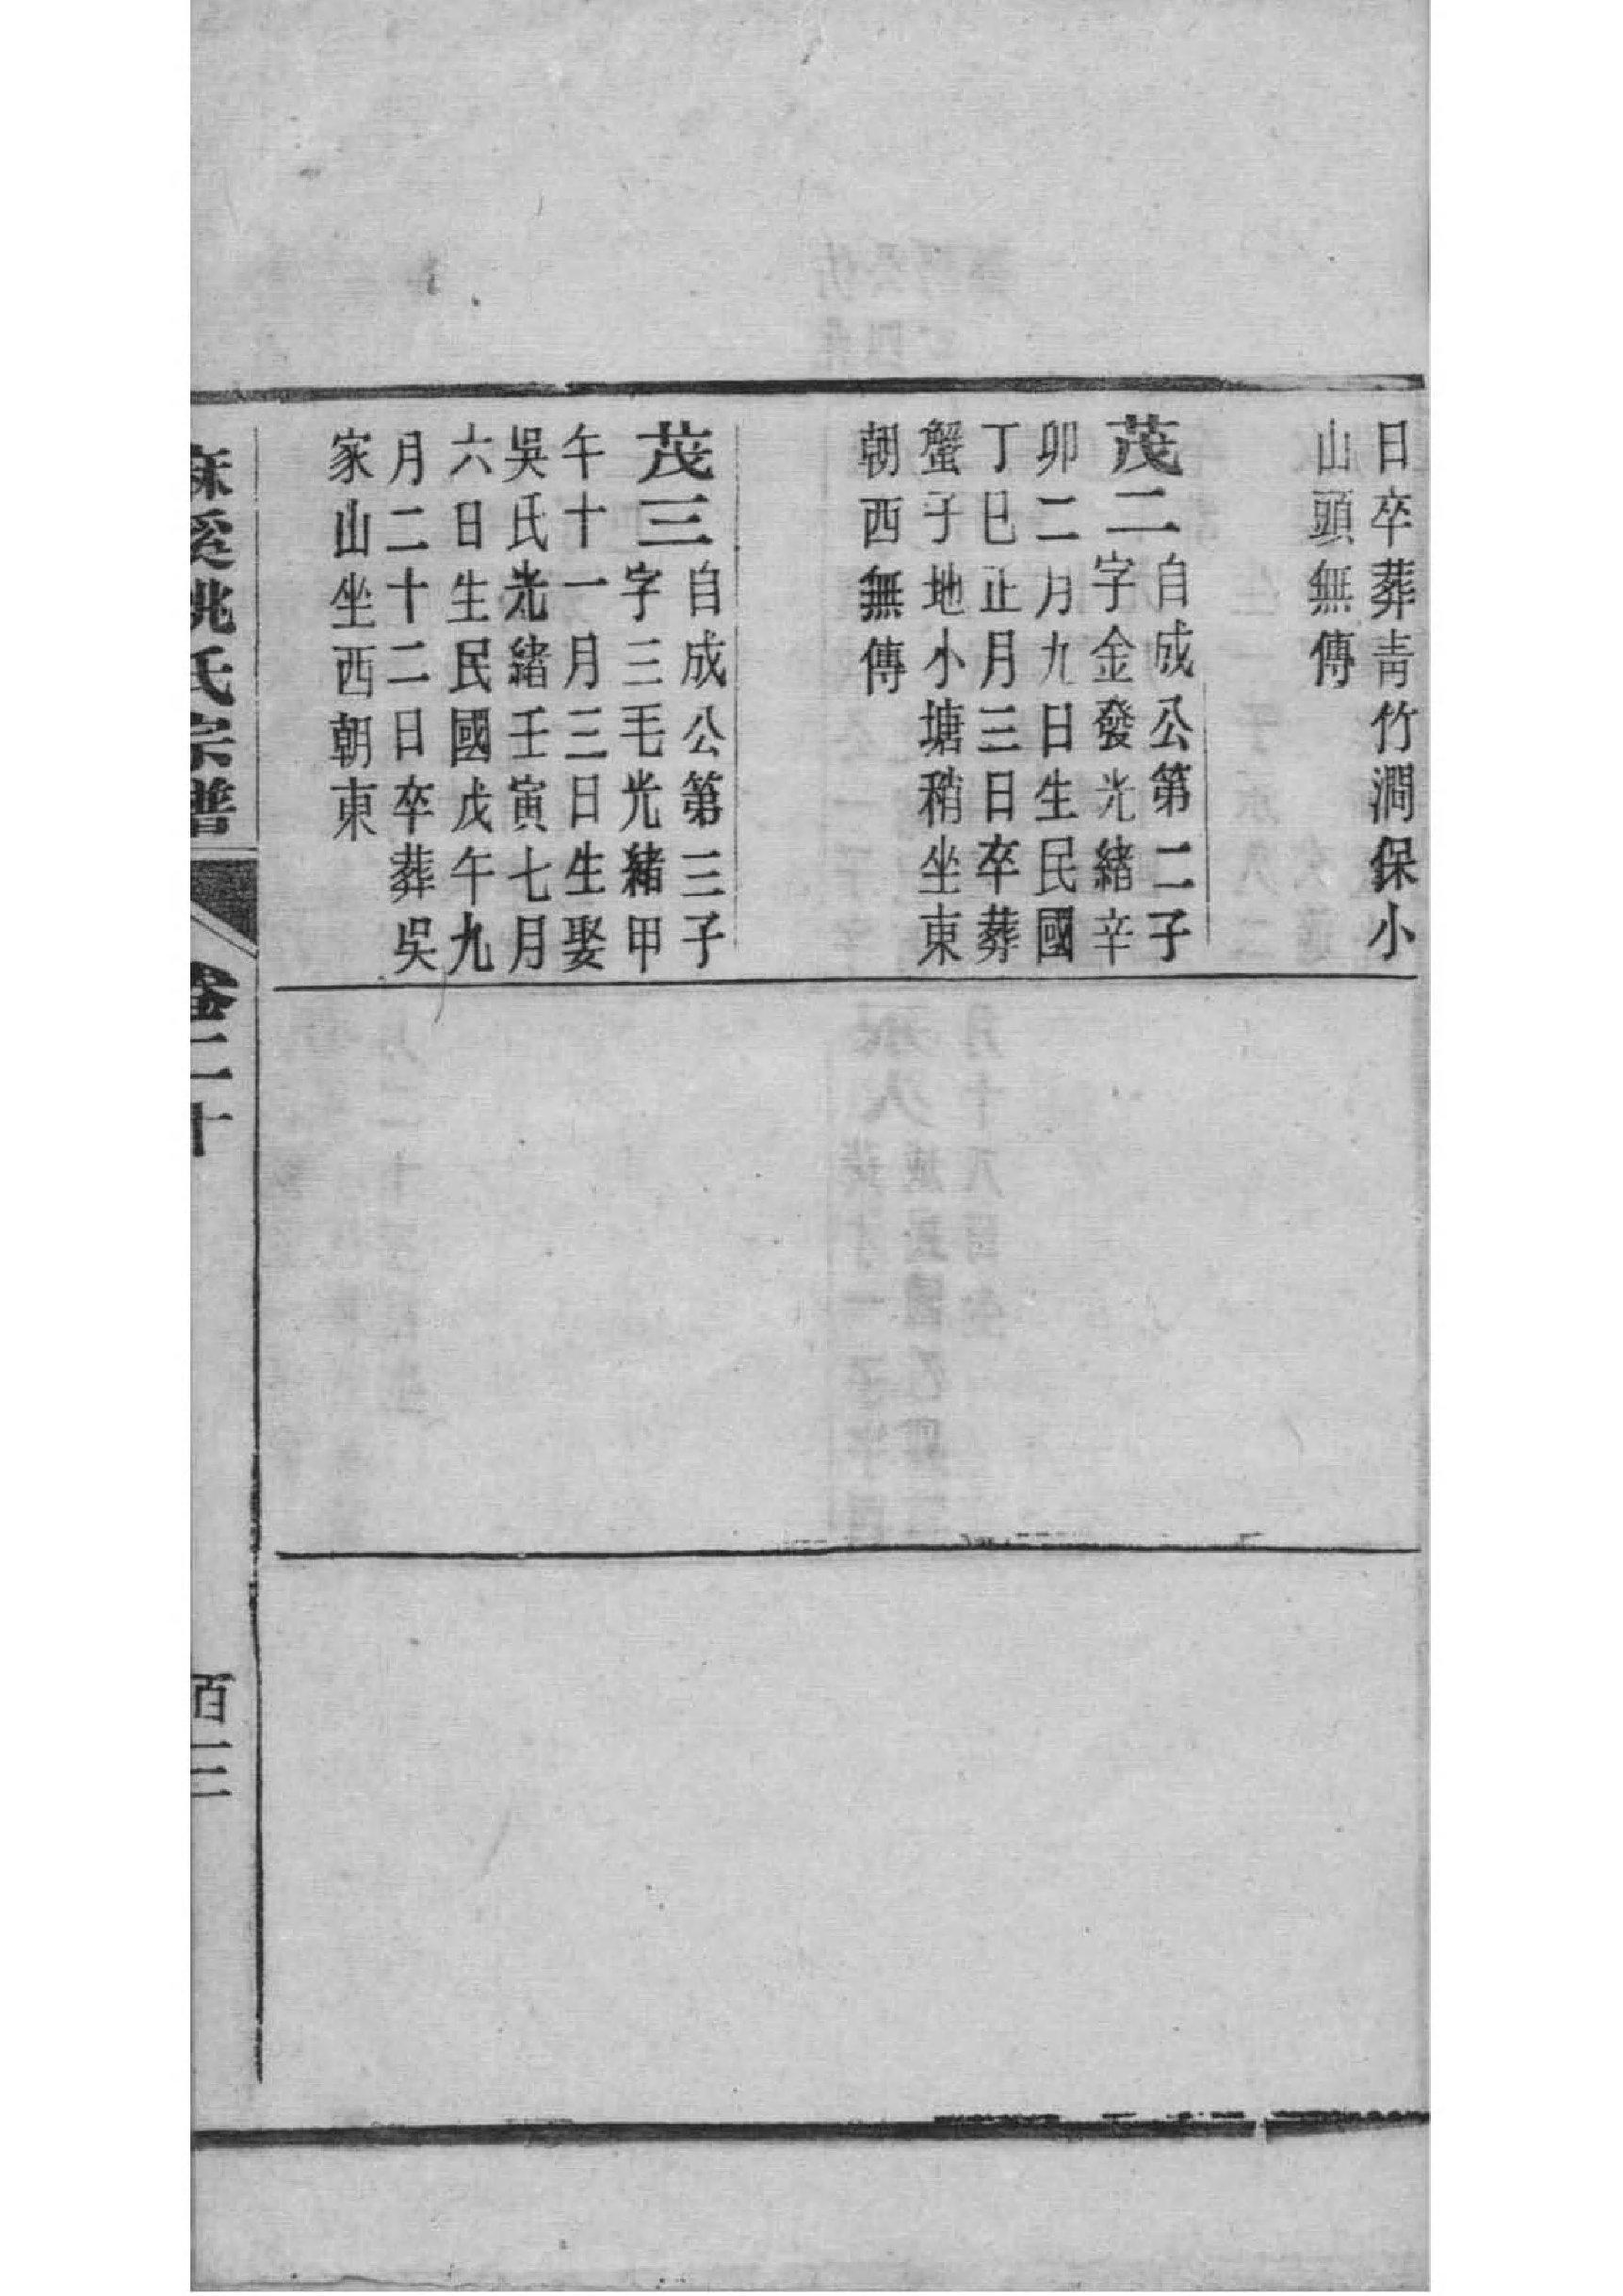 日卒葬青竹澗保小
山頭無傳
茂二自成公第二子
字金發光緒辛
卯二月九日生民國
丁巳正月三日卒葬
蟹子地小塘稍坐東
朝西無傳
茂三自成公第三子
字三毛光緒甲
午十一月三日生娶
吳氏光緒壬寅七月
六日生民國戊午九
月二十二日卒葬吳
家山坐西朝東
麻溪姚氏宗譜
卷二十
百三